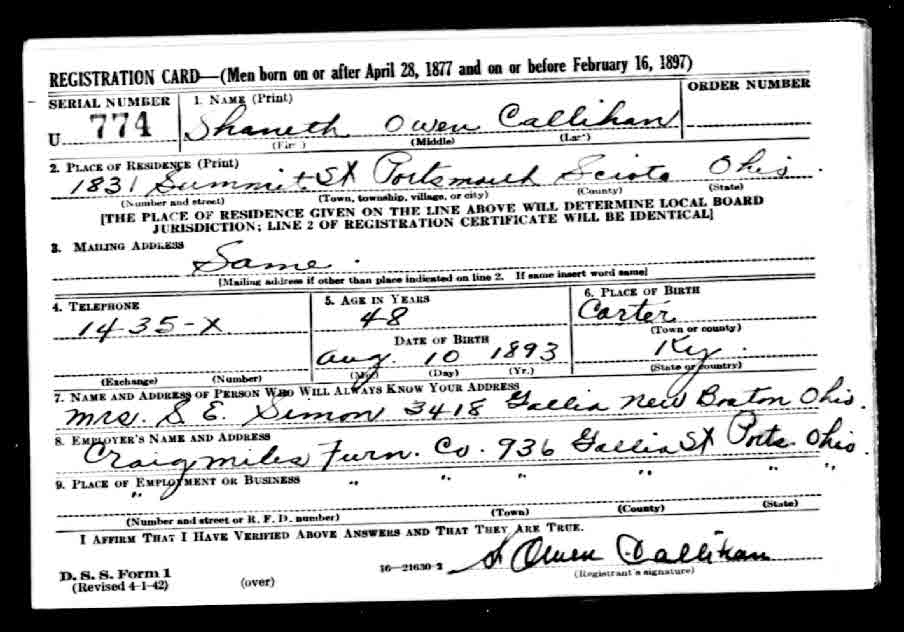 REGISTRATION CARD—(Men born on or after April 28, 1877 and on or before February 16, 1897)
SERIAL NUMBER 1. NAME (Print) ORDER NUMBER
U 774 Shaneth Owen Callihan
(First) (Middle) (Last)
2. PLACE OF RESIDENCE (Print)
1831 Summit St Portsmouth Scioto Ohio
(Number and street) (Town, township, village, or city) (County) (State)
[THE PLACE OF RESIDENCE GIVEN ON THE LINE ABOVE WILL DETERMINE LOCAL BOARD
JURISDICTION; LINE 2 OF REGISTRATION CERTIFICATE WILL BE IDENTICAL]
3. MAILING ADDRESS
Same.
[Mailing address if other than place indicated on line 2. If same insert word same]
4. TELEPHONE 5. AGE IN YEARS 6. PLACE OF BIRTH
14-35-X 48 Carter
DATE OF BIRTH (Town or county)
Aug. 10 1893 Ky.
(Exchange) (Number) (Mo.) (Day) (Yr.) (State or country)
7. NAME AND ADDRESS OF PERSON WHO WILL ALWAYS KNOW YOUR ADDRESS
Mrs. S E. Simon 3418 Gallia New Boston Ohio.
8. EMPLOYER'S NAME AND ADDRESS
Craigmiles Furn. Co. 936 Gallia St Ports. Ohio
9. PLACE OF EMPLOYMENT OR BUSINESS
" " " " " " "
(Number and street or R. F. D. number) (Town) (County) (State)
I AFFIRM THAT I HAVE VERIFIED ABOVE ANSWERS AND THAT THEY ARE TRUE.
S Owen Callihan
D. S. S. Form 1 16—21630-2 (Registrant's signature)
(Revised 4-1-42) (over)